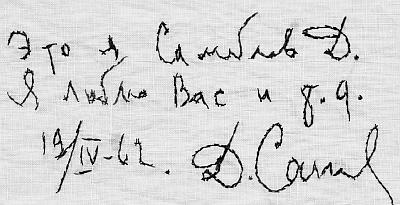 Это я Самблов Д.
Я люблю Вас и д.д.
19/IV-62. Д. Сам